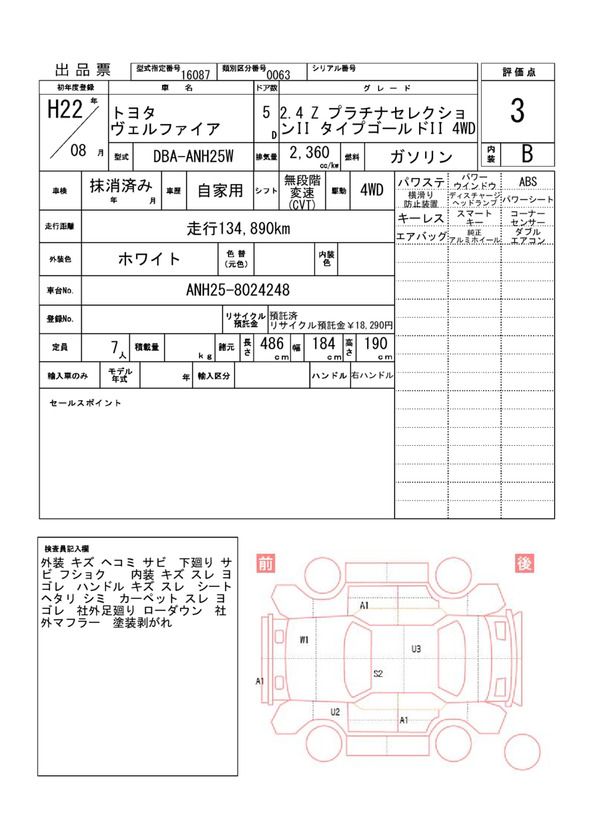 出品票 型式指定番号 16087 類別区分番号 0063 シリアル番号
評価点
3
内装 B
初年度登録 車名 ドア数 グレード
H22年 トヨタ 5 2.4 Z プラチナセレクショ
ヴェルファイア D ンII タイプゴールドII 4WD
08月 型式 DBA-ANH25W 排気量 2,360 cc/kw 燃料 ガソリン
車検 抹消済み 年 月 車歴 自家用 シフト 無段階変速(CVT) 駆動 4WD
走行距離 走行134,890km
外装色 ホワイト 色替(元色) 内装色
車台No. ANH25-8024248
登録No. リサイクル預託金 預託済
リサイクル預託金¥18,290円
定員 7人 積載量 kg 諸元 長さ 486cm 幅 184cm 高さ 190cm
輸入車のみ モデル年式 年 輸入区分 ハンドル 右ハンドル
パワステ パワーウインドウ ABS
横滑り防止装置 ディスチャージヘッドランプ パワーシート
キーレス スマートキー コーナーセンサー
エアバッグ 純正アルミホイール ダブルエアコン
セールスポイント
検査員記入欄
外装 キズ ヘコミ サビ 下廻り サ
ビ フショク 内装 キズ スレ ヨ
ゴレ ハンドル キズ スレ シート
ヘタリ シミ カーペット スレ ヨ
ゴレ 社外足廻り ローダウン 社
外マフラー 塗装剥がれ
前 後
A1
W1
U3
S2
A1
U2
A1